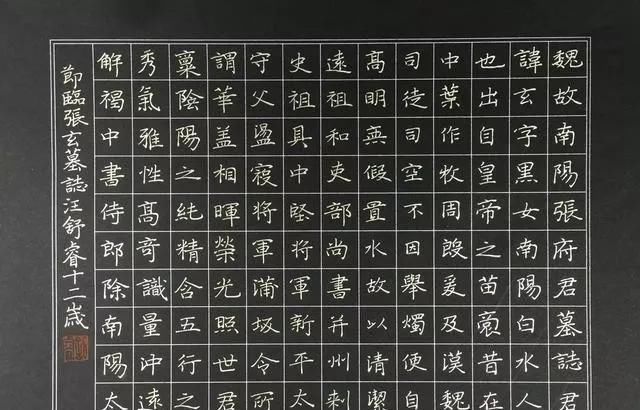 魏故南陽張府君墓誌君
諱玄字黑女南陽白水人
也出自皇帝之苗裔昔在
中葉作牧周殷爰及漢魏
司徒司空不因舉燭便自
高明無假置水故以清潔
遠祖和吏部尚書并州刺
史祖具中堅將軍新平太
守父盪寇將軍蒲坂令所
謂華蓋相暉榮光照世君
稟陰陽之純精含五行之
秀氣雅性高奇識量沖遠
解褐中書侍郎除南陽太
節臨張玄墓誌汪舒睿十二歲